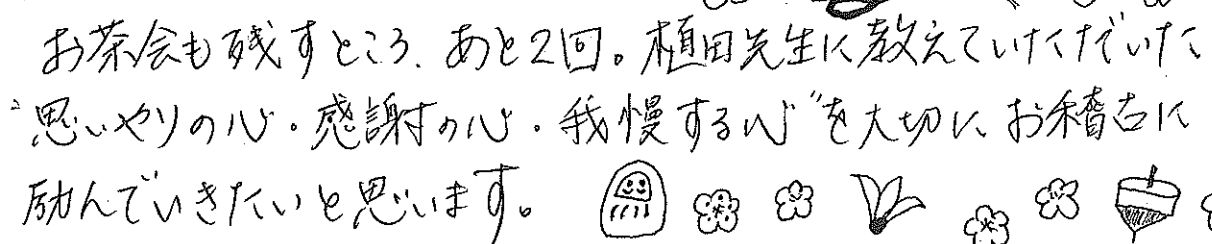 お茶会も残すところ、あと2回。植田先生に教えていただいた
"思いやりの心・感謝の心・我慢する心"を大切に、お稽古に
励んでいきたいと思います。